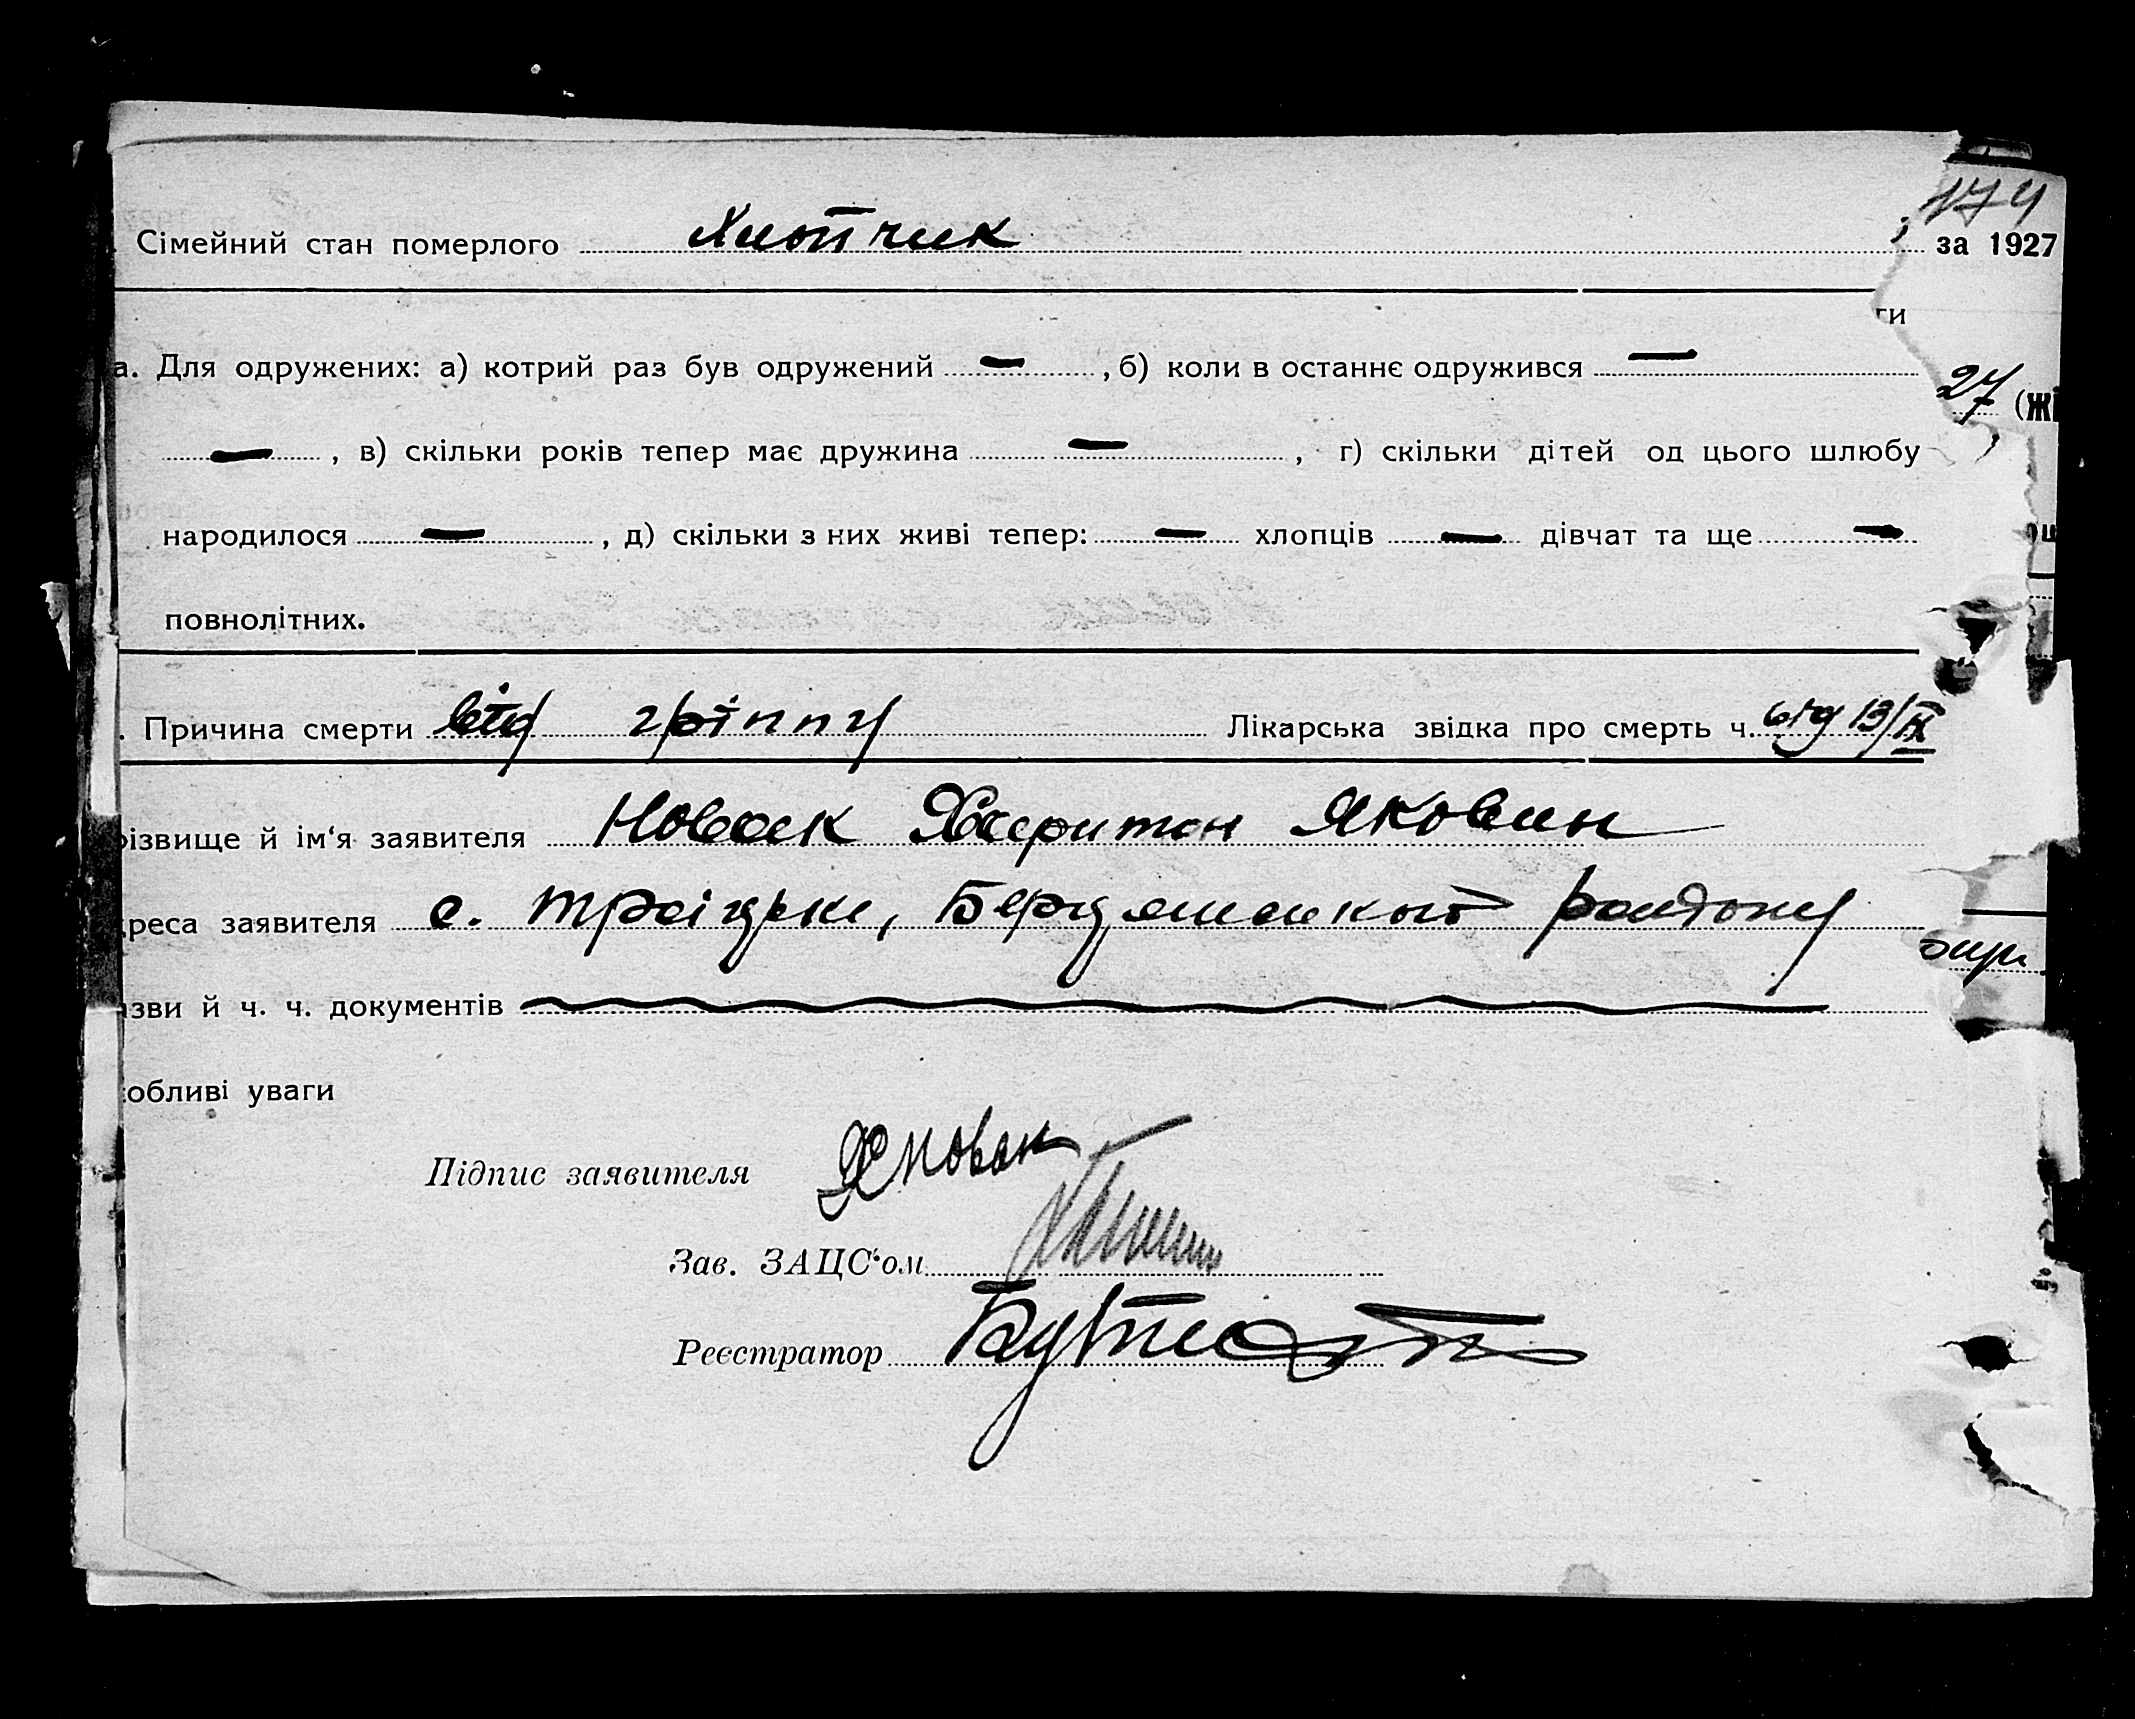 174
. Сімейний стан померлого Хлопчик за 1927
ги
а. Для одружених: а) котрий раз був одружений — , б) коли в останнє одружився —
27 (жі
— , в) скільки років тепер має дружина — , г) скільки дітей од цього шлюбу
народилося — , д) скільки з них живі тепер: — хлопців — дівчат та ще —
повнолітних.
. Причина смерти від гріппу Лікарська звідка про смерть ч. від 13/IX
різвище й ім‘я заявителя Новак Харитон Яковин
дреса заявителя с. Троіцьке, Бердянського району
азви й ч. ч. документів
собливі уваги
Підпис заявителя Х Новак
Зав. ЗАЦС‘ом
Реєстратор